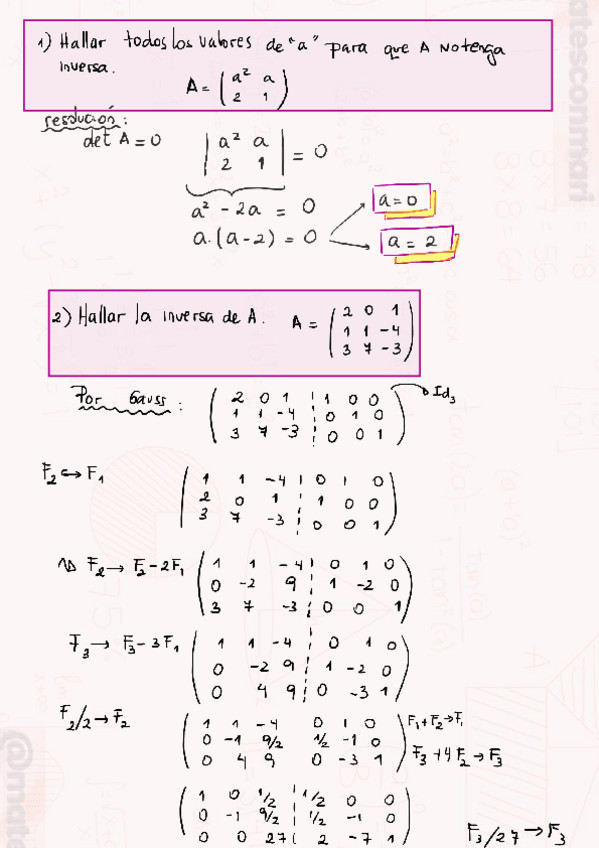 1) Hallar todos los valores de "a" para que A no tenga
inversa.
A = ( a² a
2 1 )
resolución:
det A = 0
| a² a |
| 2 1 | = 0
a² - 2a = 0
a=0
a.(a-2) = 0
a = 2
2) Hallar la inversa de A. A = ( 2 0 1
1 1 -4
3 7 -3 )
Por Gauss: ( 2 0 1 | 1 0 0 → Id₃
1 1 -4 | 0 1 0
3 7 -3 | 0 0 1 )
F₂ ↔ F₁ ( 1 1 -4 | 0 1 0
2 0 1 | 1 0 0
3 7 -3 | 0 0 1 )
F₂ → F₂-2F₁ ( 1 1 -4 | 0 1 0
0 -2 9 | 1 -2 0
3 7 -3 | 0 0 1 )
F₃ → F₃-3F₁ ( 1 1 -4 | 0 1 0
0 -2 9 | 1 -2 0
0 4 9 | 0 -3 1 )
F₂/2 → F₂ ( 1 1 -4 0 1 0 F₁+F₂→F₁
0 -1 9/2 1/2 -1 0
0 4 9 0 -3 1 ) F₃+4F₂→F₃
( 1 0 1/2 | 1/2 0 0
0 -1 9/2 | 1/2 -1 0
0 0 27 | 2 -7 1 ) F₃/27 → F₃